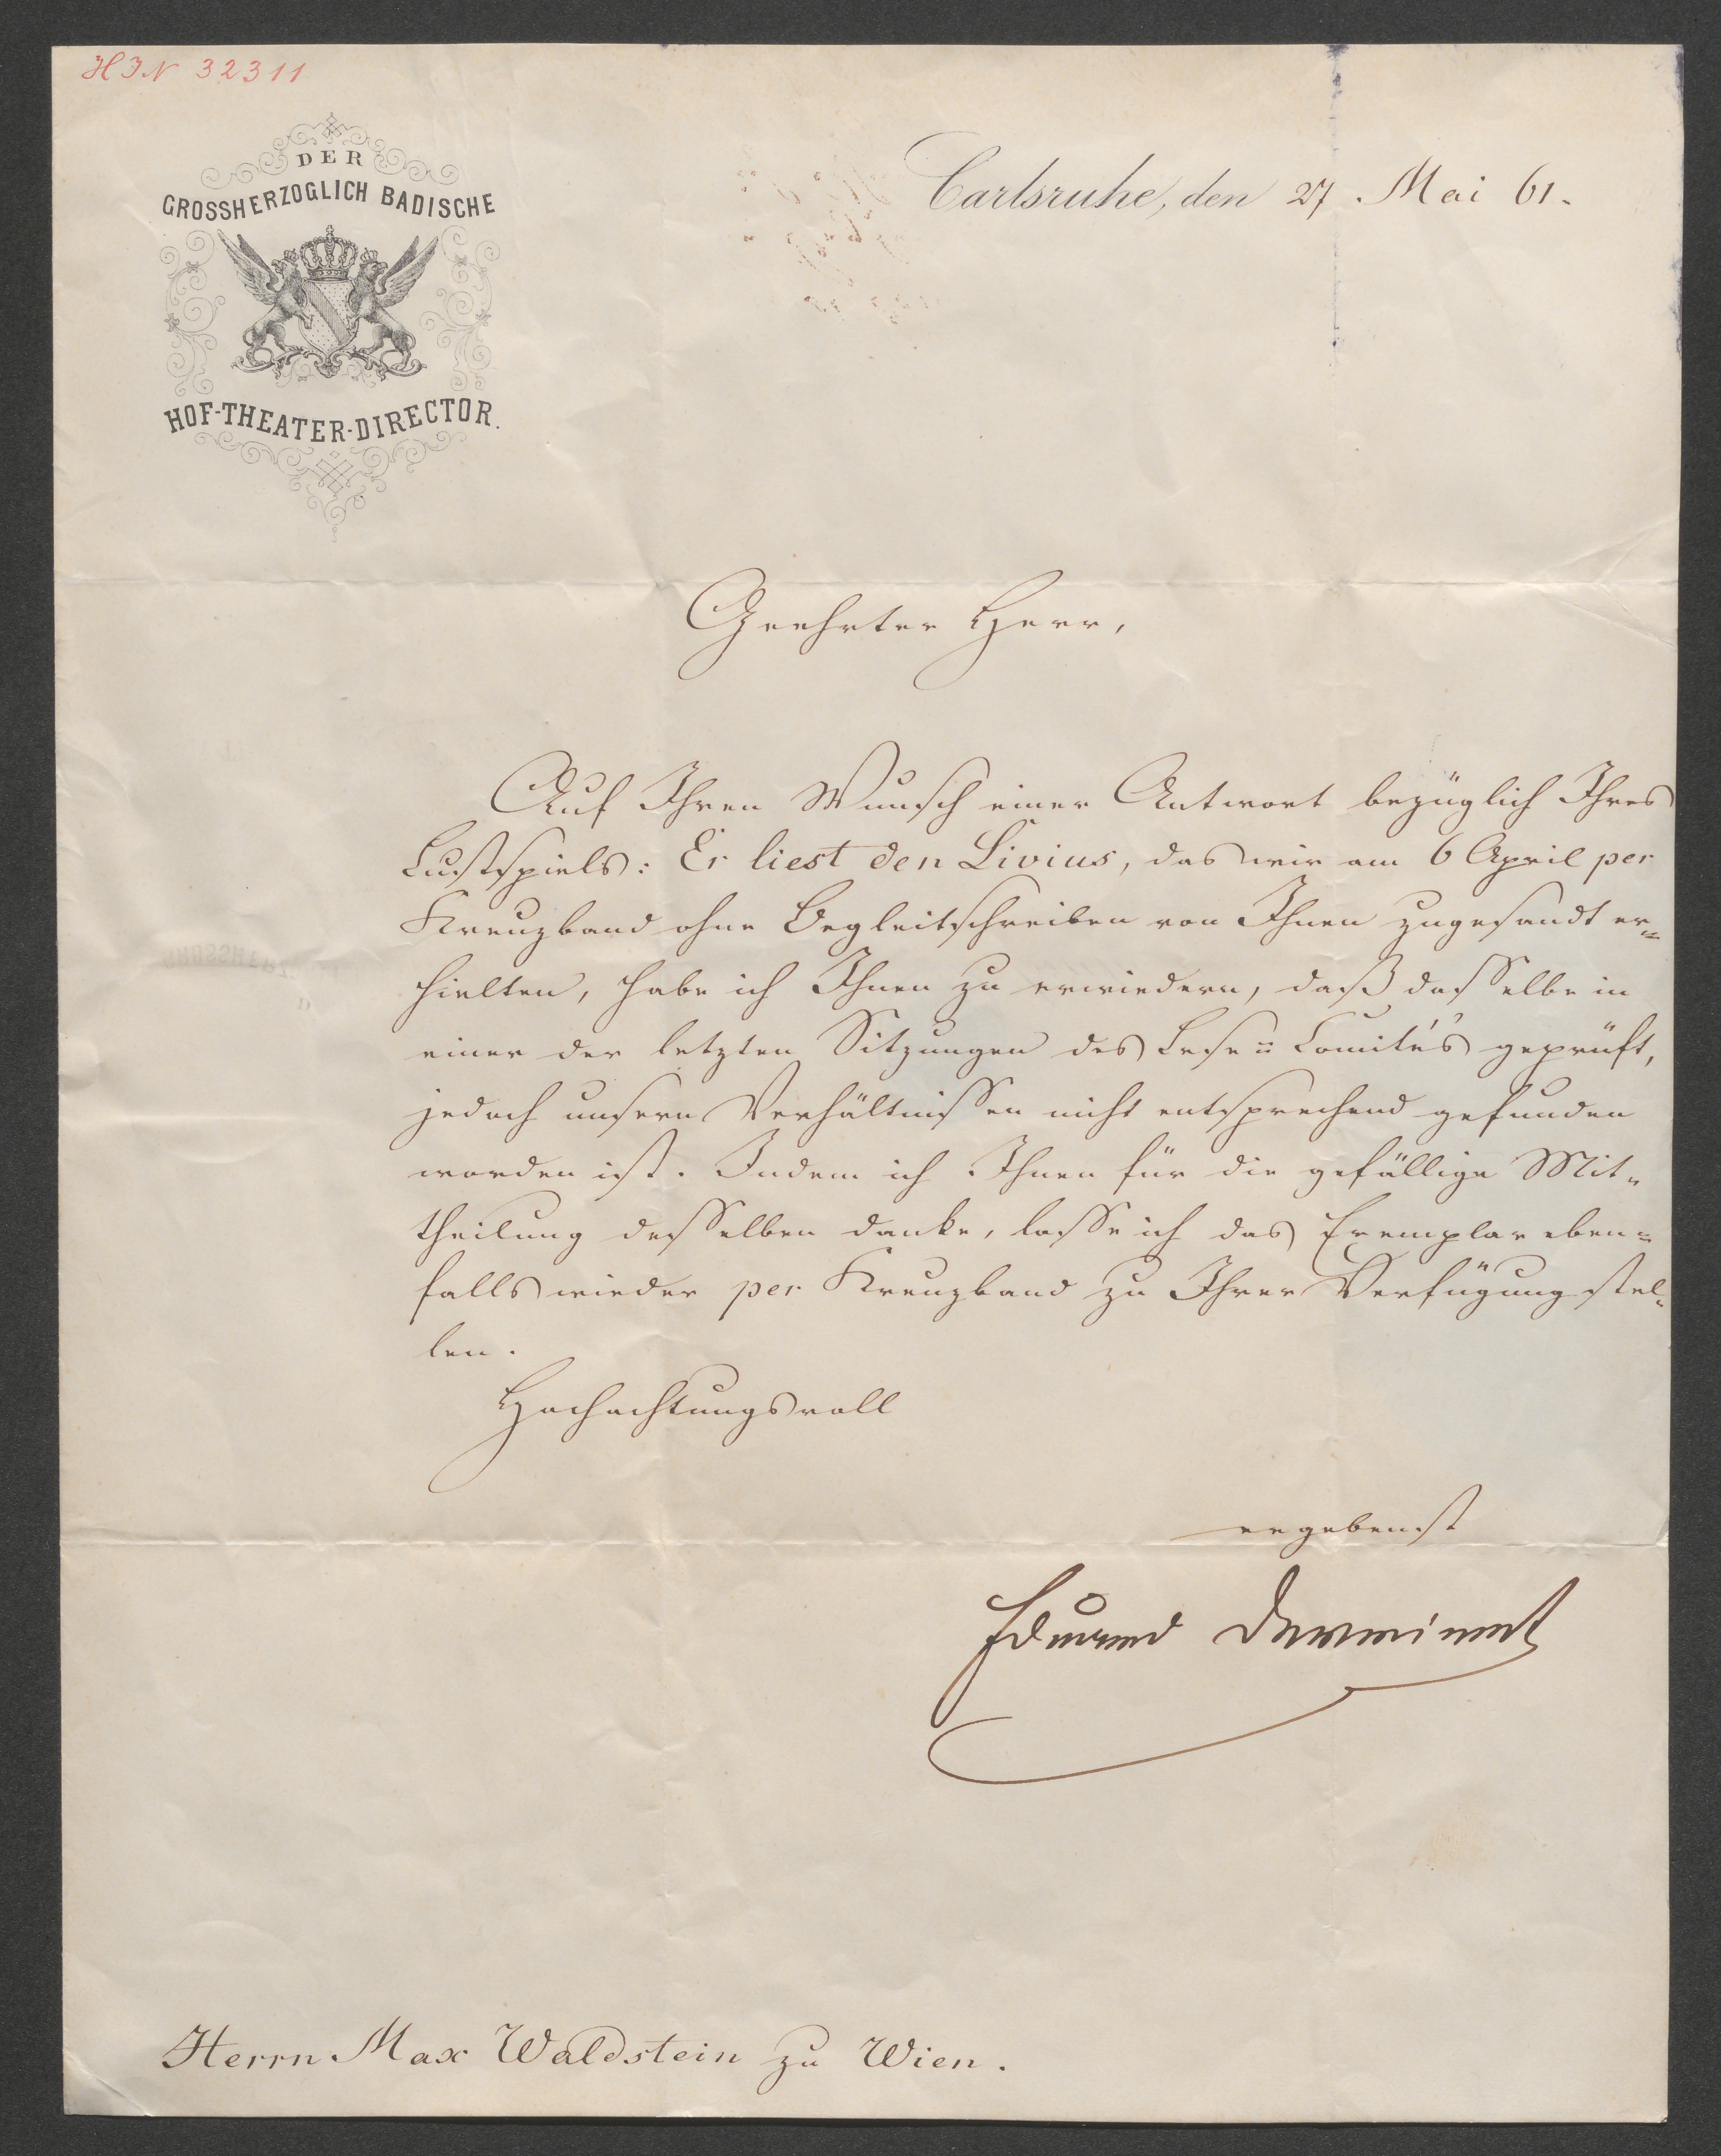 HIN 32311
DER
GROSSHERZOGLICH BADISCHE
HOF-THEATER-DIRECTOR.
Carlsruhe, den 27. Mai 61.
Geehrter Herr,
Auf Ihren Wunsch einer Antwort bezüglich Ihres
Lustspiels: Er liest den Livius, das wir am 6 April per
Kreuzband ohne Begleitschreiben von Ihnen zugesandt er=
hielten, habe ich Ihnen zu erwiedern, daß dasselbe in
einer der letzten Sitzungen des Lese=Comité's geprüft,
jedoch unsern Verhältnissen nicht entsprechend gefunden
worden ist. Indem ich Ihnen für die gefällige Mit=
theilung desselben danke, lasse ich das Exemplar eben=
falls wieder per Kreuzband zu Ihrer Verfügung stel=
len.
Hochachtungsvoll
ergebenst
Eduard Devrient
Herrn Max Waldstein zu Wien.